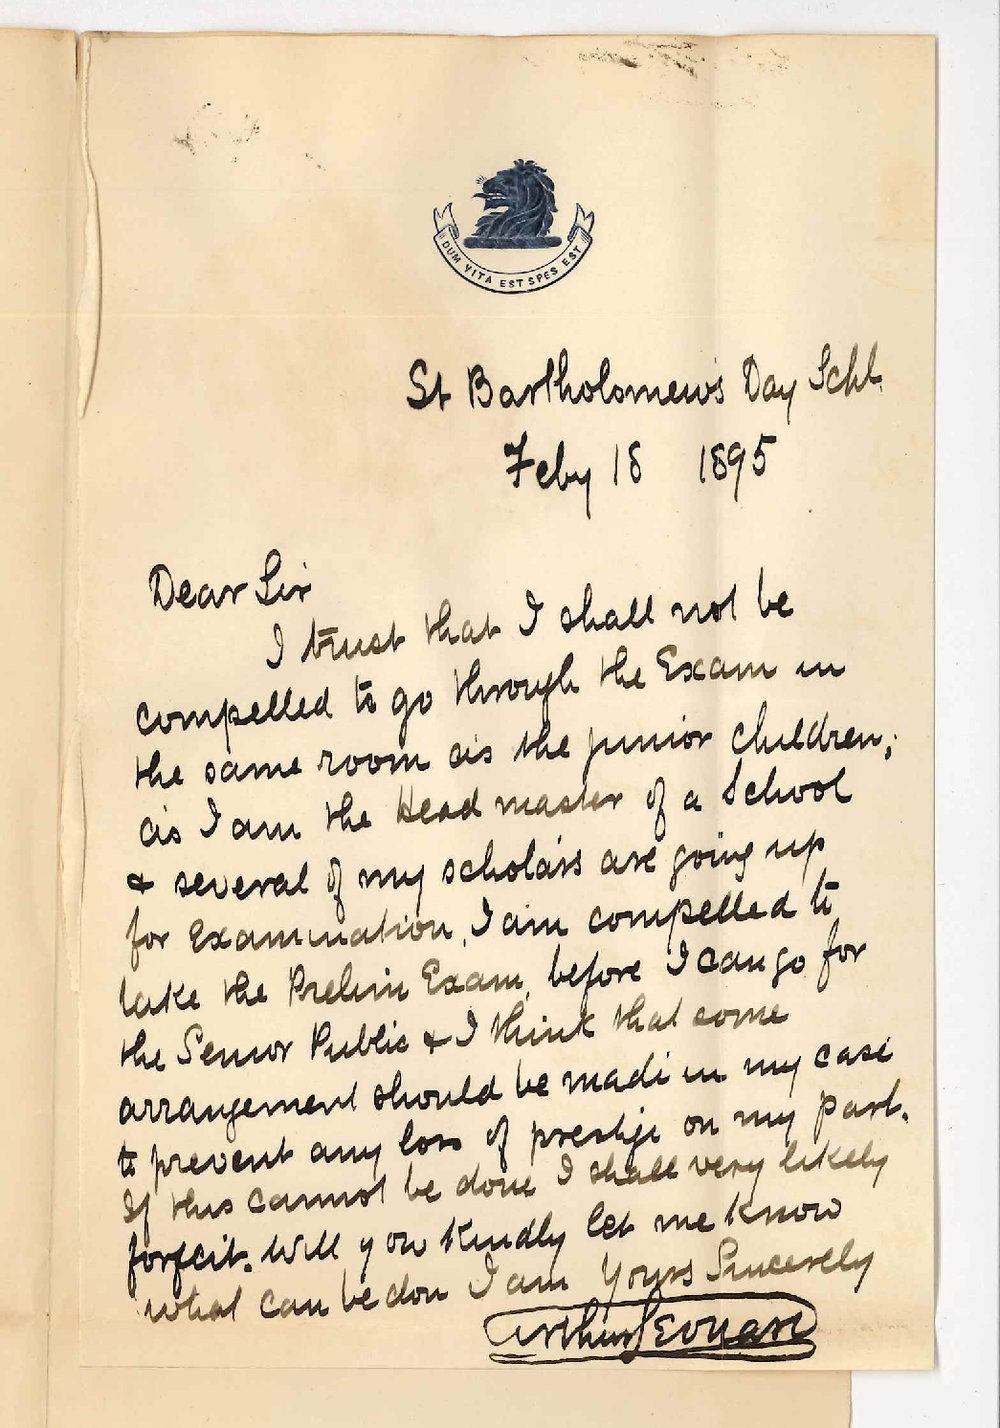 DUM VITA EST SPES EST
St Bartholomew's Day Schl.
Feby 18 1895
Dear Sir
I trust that I shall not be
compelled to go through the Exam in
the same room as the junior children,
as I am the Head master of a School
& several of my scholars are going up
for Examination, I am compelled to
take the Prelim Exam, before I can go for
the Senior Public & I think that some
arrangement should be made in my case
to prevent any loss of prestige on my part.
If this cannot be done I shall very likely
forfeit. Will you kindly let me know
what can be don I am Yours Sincerely
Arthur